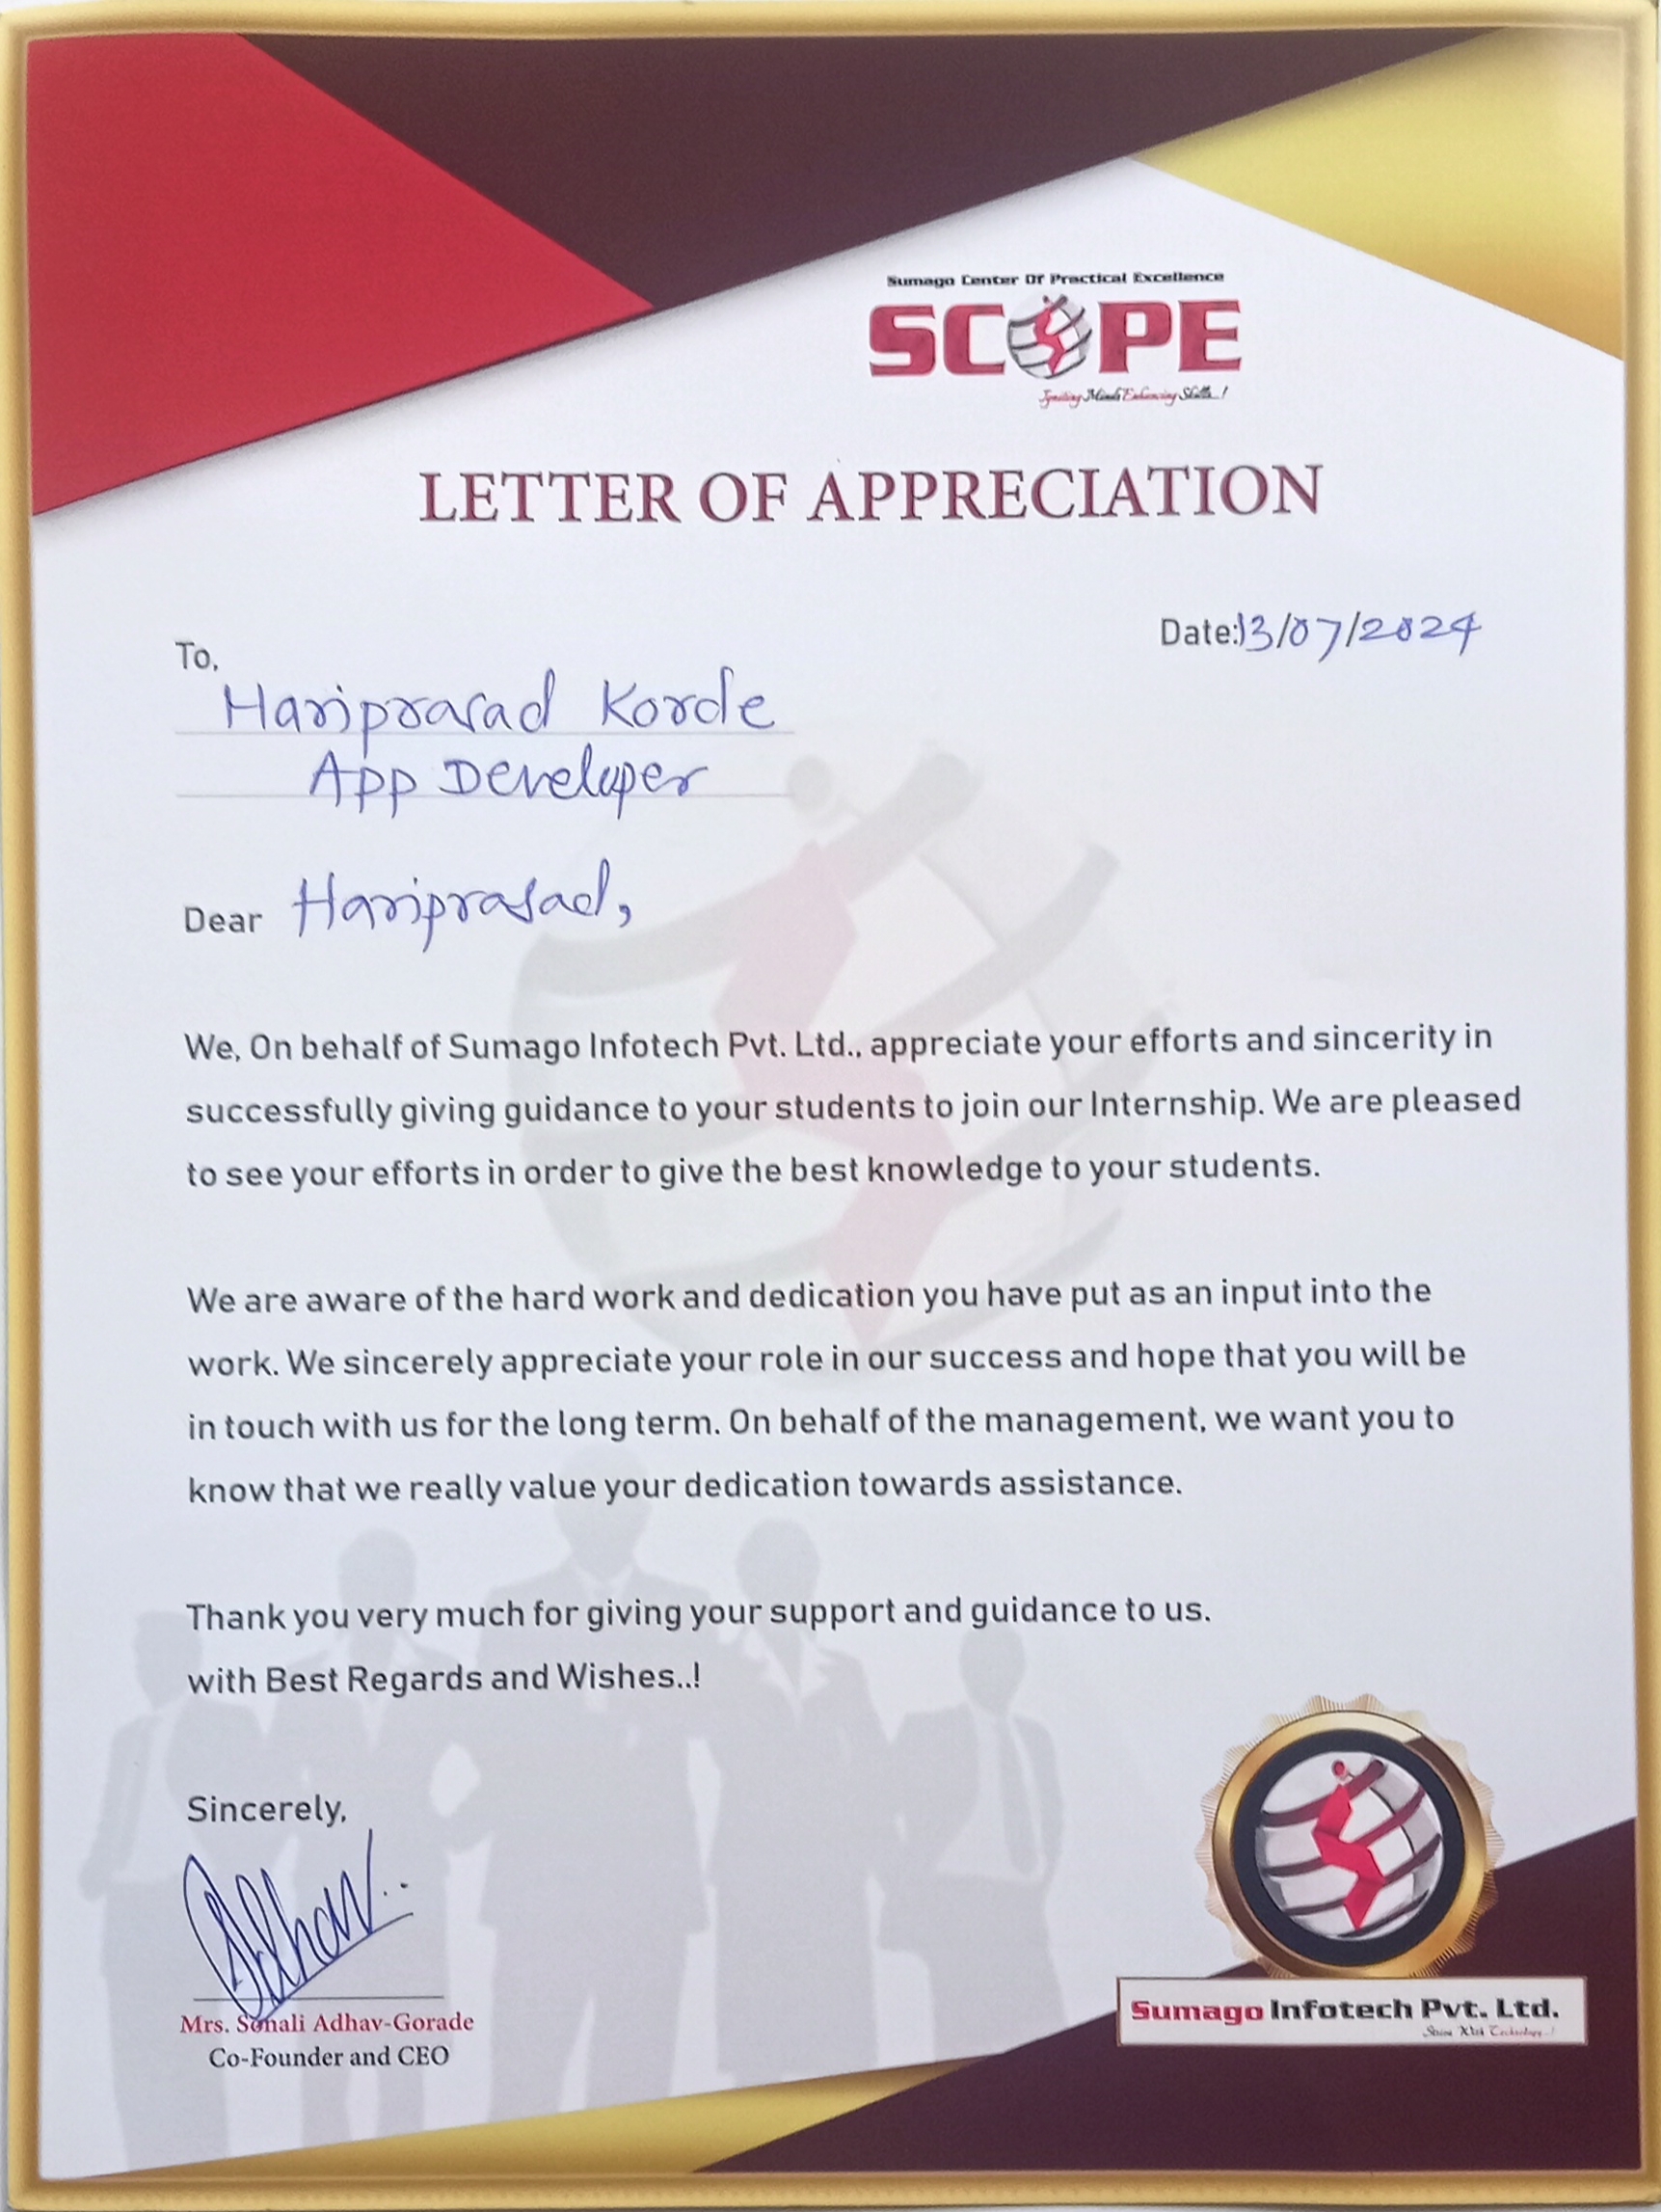 Sumago Center Of Practical Excellence
SCOPE
Igniting Minds Enhancing Skills..!
LETTER OF APPRECIATION
Date:13/07/2024
To,
Hariprasad Korde
App Developer
Dear Hariprasad,
We, On behalf of Sumago Infotech Pvt. Ltd., appreciate your efforts and sincerity in
successfully giving guidance to your students to join our Internship. We are pleased
to see your efforts in order to give the best knowledge to your students.
We are aware of the hard work and dedication you have put as an input into the
work. We sincerely appreciate your role in our success and hope that you will be
in touch with us for the long term. On behalf of the management, we want you to
know that we really value your dedication towards assistance.
Thank you very much for giving your support and guidance to us.
with Best Regards and Wishes..!
Sincerely,
Mrs. Sonali Adhav-Gorade
Co-Founder and CEO
Sumago Infotech Pvt. Ltd.